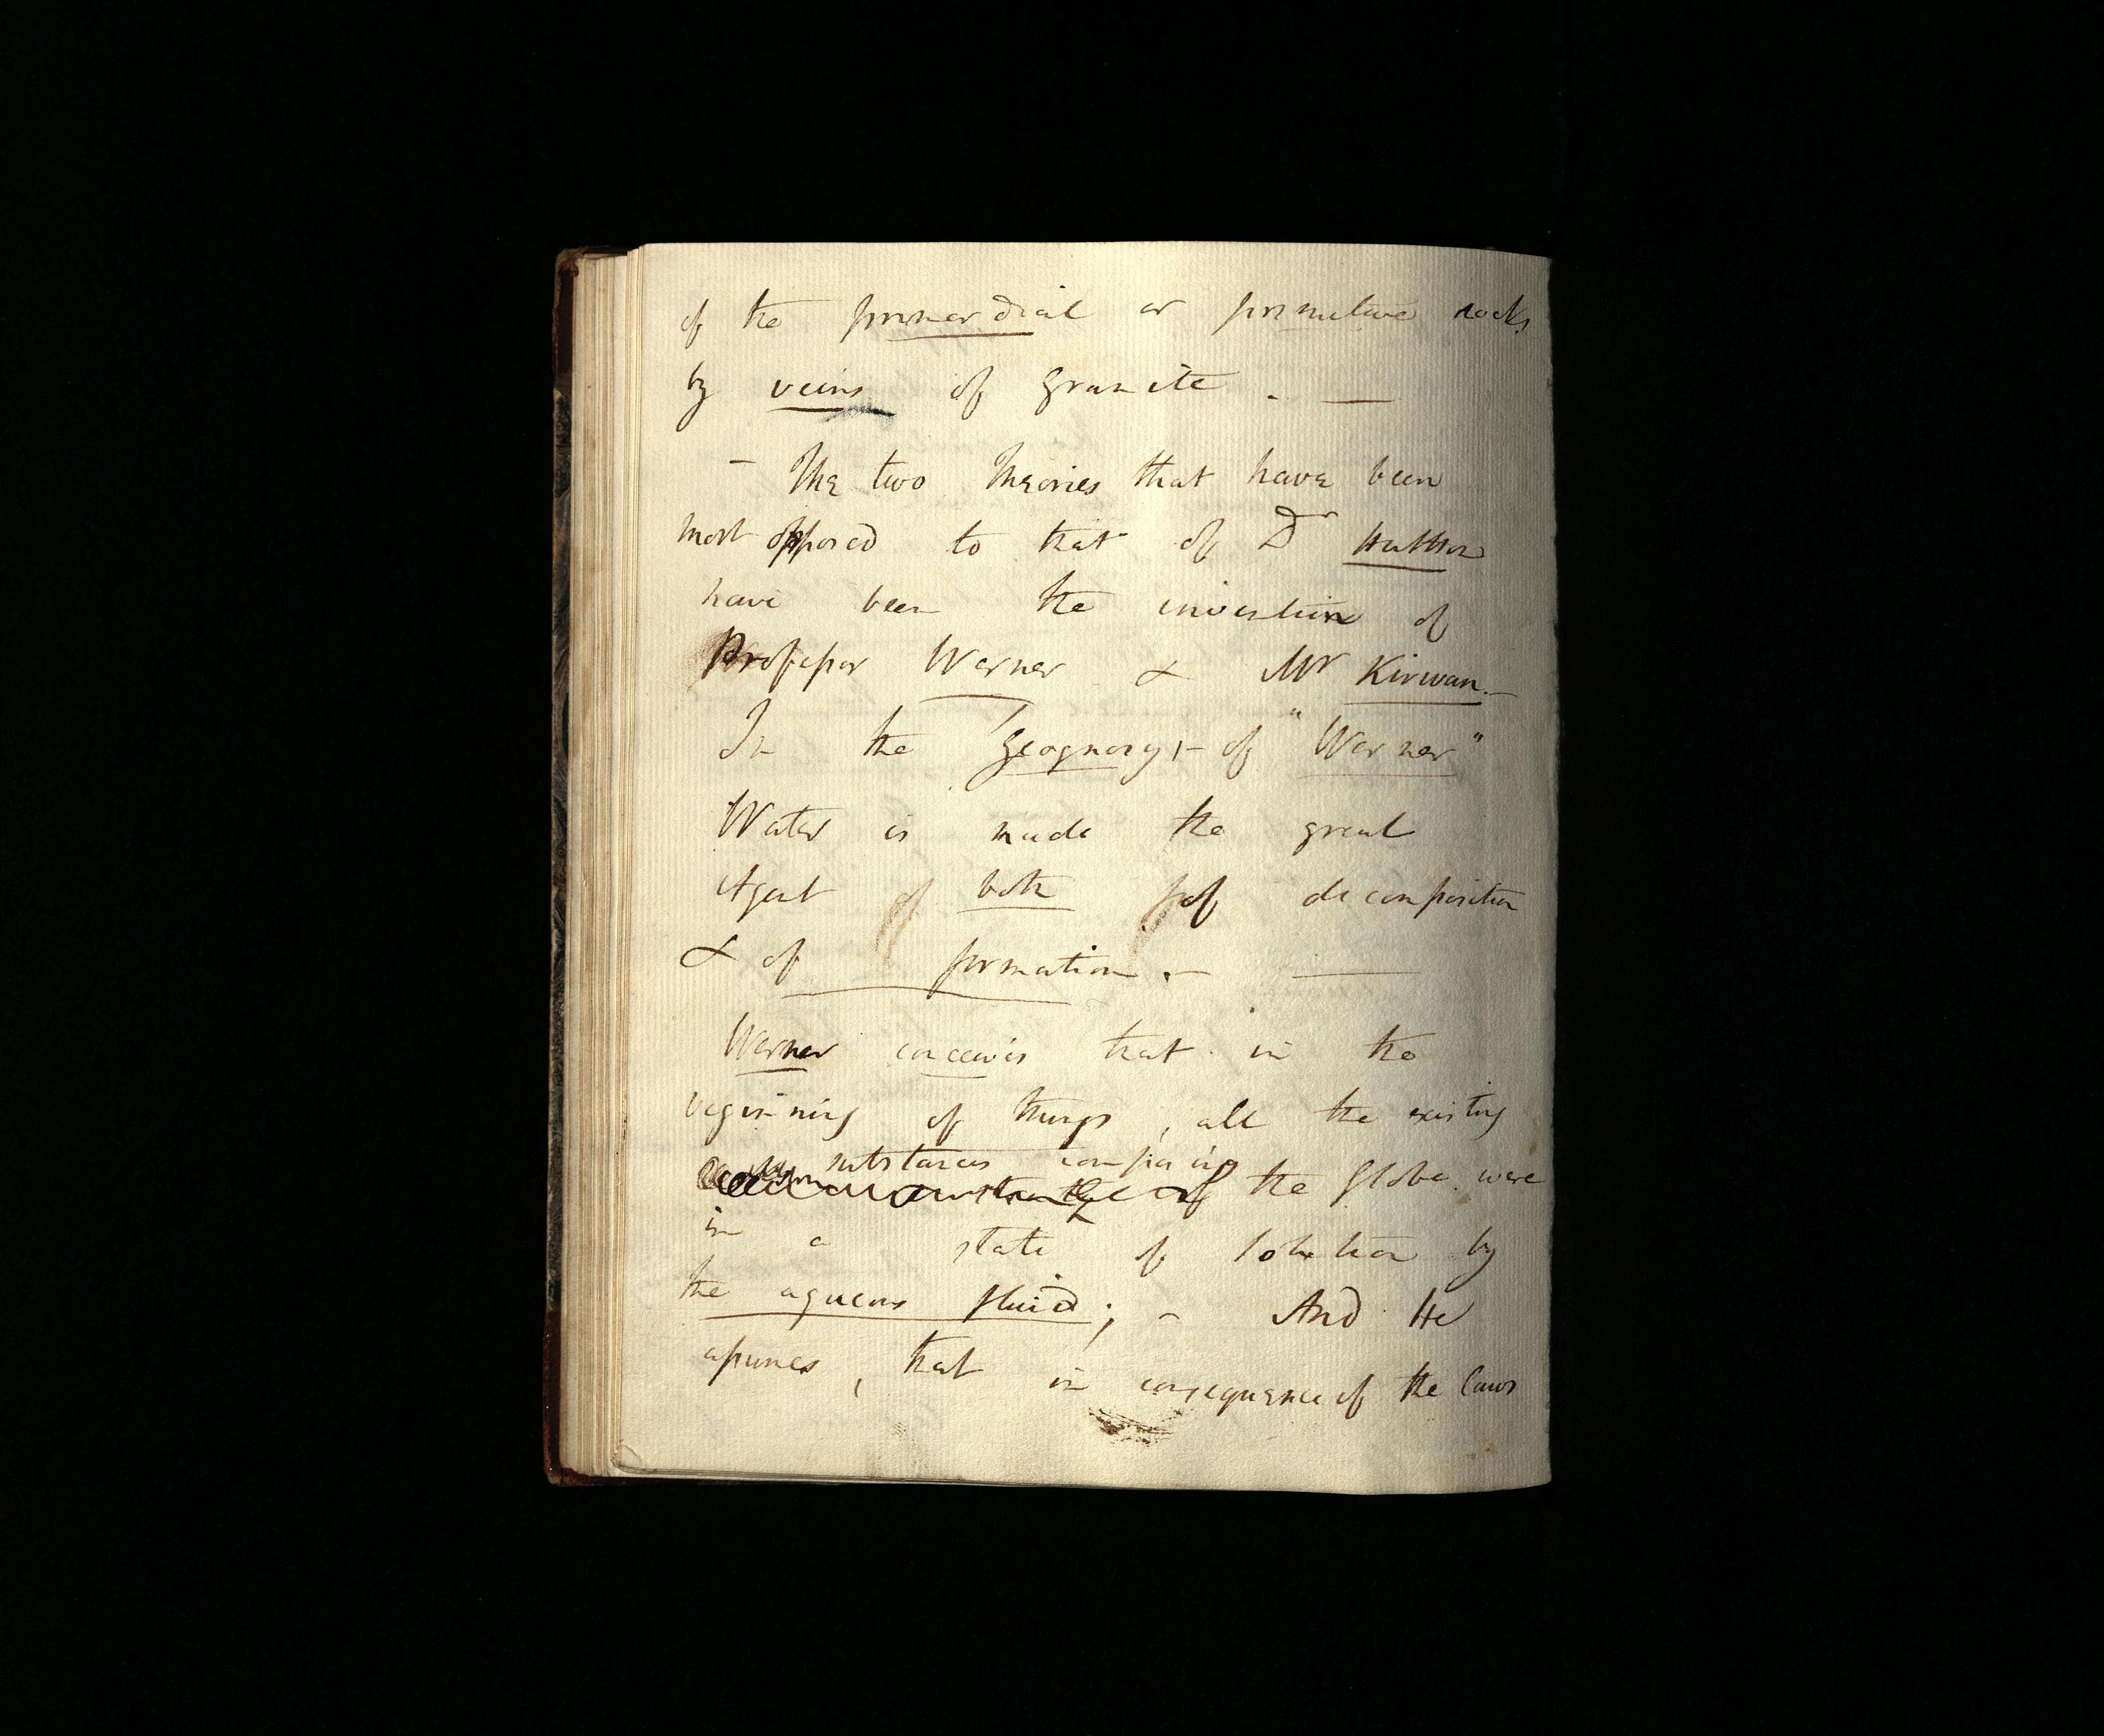 of the primordial or primitive rocks
by veins of granite. —
— The two Theories that have been
most opposed to that of Dr Hutton
have been the invention of
Professor Werner & Mr Kirwan. —
In the Geognosy, — of "Werner"
Water is made the great
Agent of both of decomposition
& of formation. — —
Werner conceives that in the
beginning of things, all the existing
substances composing
of the Globe were
in a state of solution by
the aqueous fluid; — And He
assumes, that in consequence of the laws